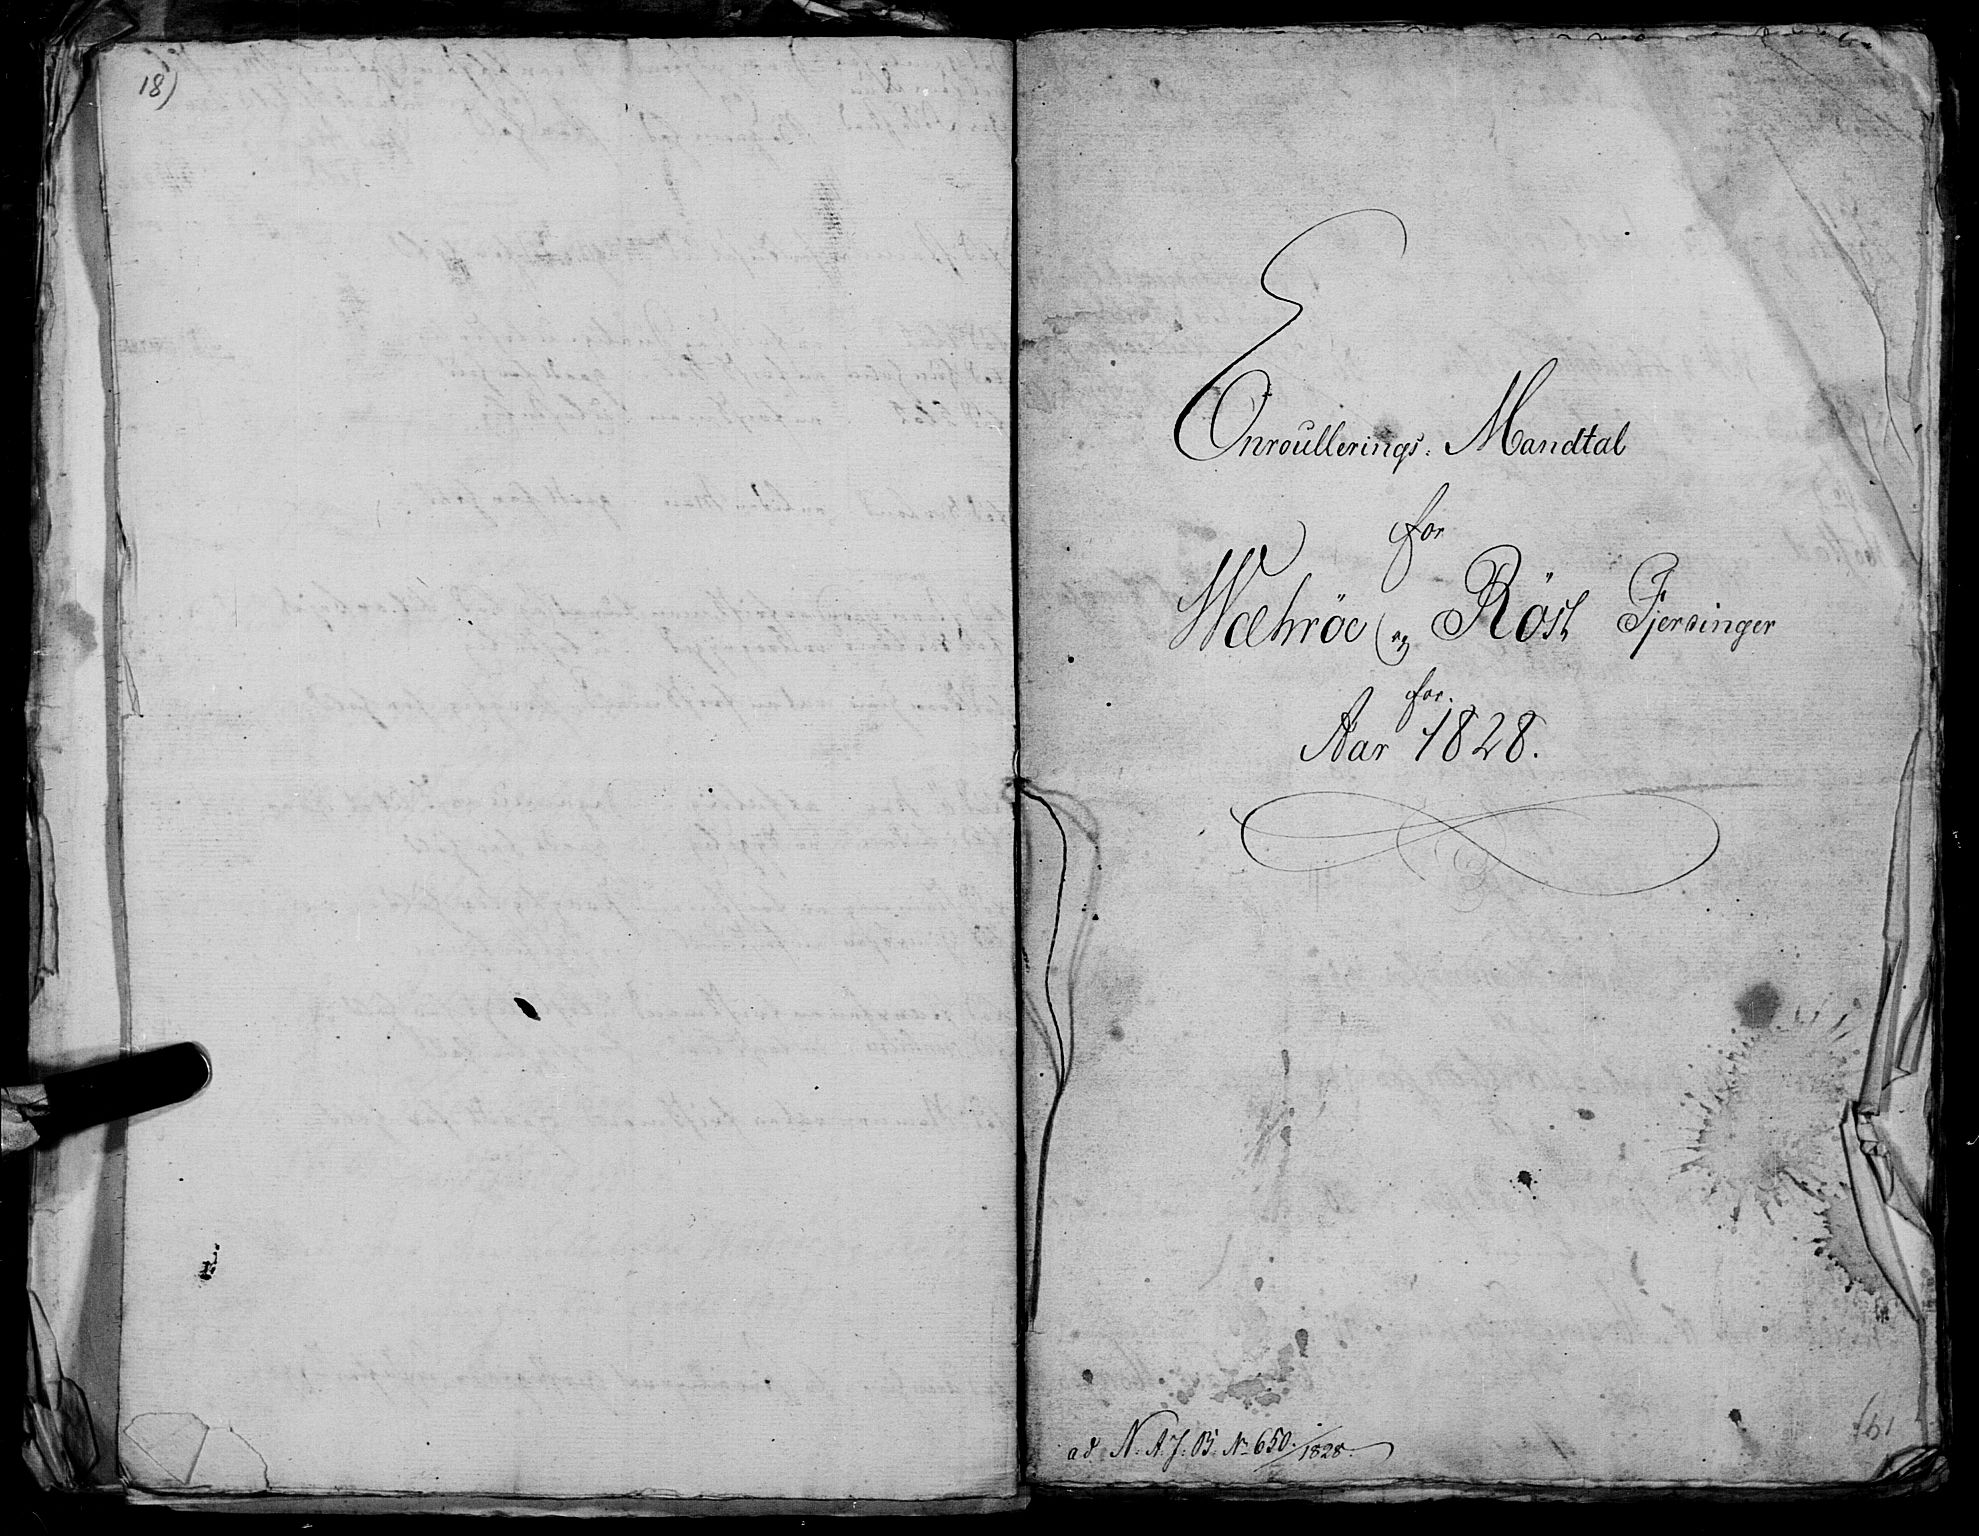 18)
Enroullerings: Mandtal
for
Wæhröe og Röst Fjerdinger
for
Aar 1828.
ad N: A: J: B: No 650/1828.
161